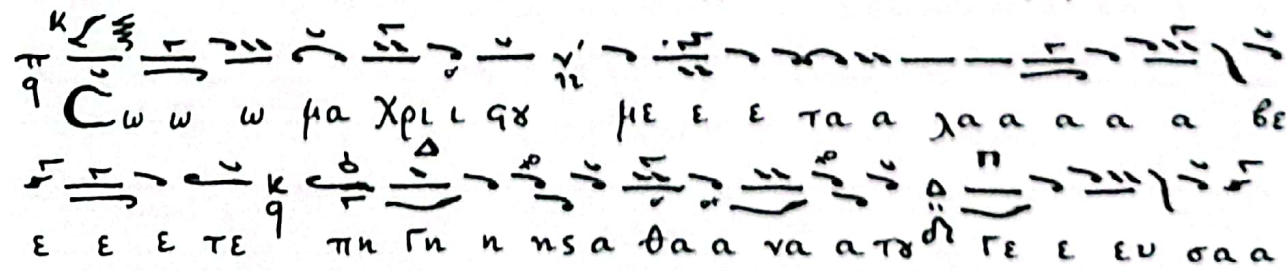 Σω ω ω μα Χρι ι ςȣ με ε ε τα α λα α α α α βε
ε ε ε τε πη Γη η ης α θα α να α τȣ Γε ε ευ σα α